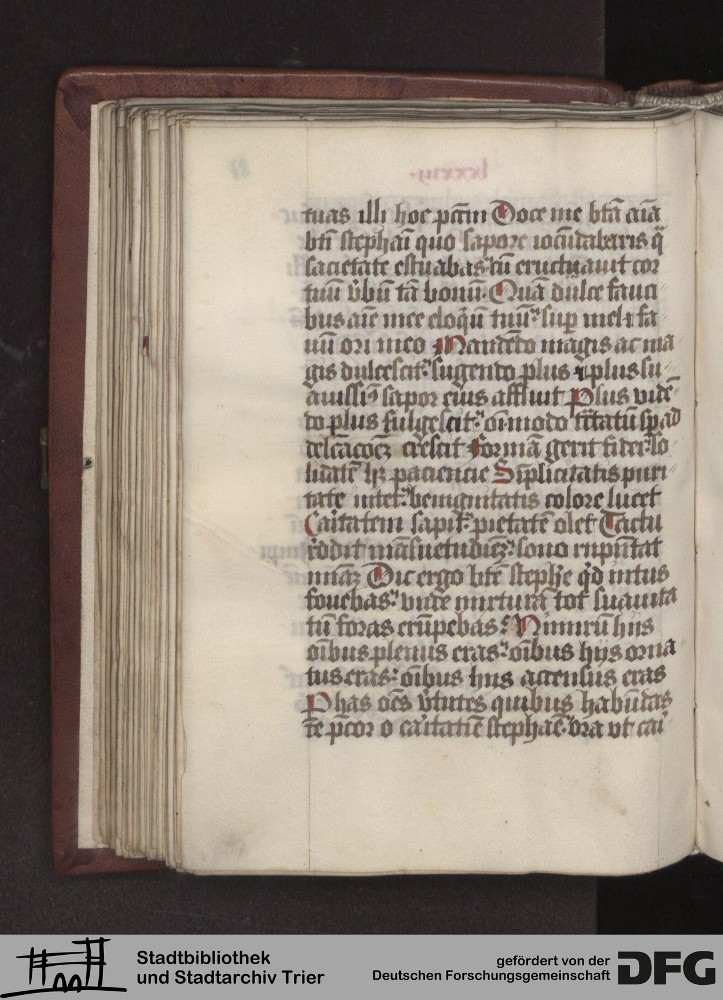 tuas illi hoc pctm Doce me btā aīa
btī stephāi quo sapore iocūdabaris q̄
sacietate estuabas cū eructuauit cor
tuū v̓bū tā bonū Quā dulce fauci
bus aīe mee eloqū tuū sup mel ⁊ fa
uū ori meo Mandēdo magis ac ma
gis dulcescit sugendo plus ⁊ plus su
auissiꝰ sapor eius affluit Plus vidē
do plus fulgescit
crescit Formā gerit fidei so
liditatē hꝫ paciencie Sīplicitatis puri
tate nitet benignitatis colore lucet
Caitatem sapit pietatē olet Tactu
rōdit māsuetudīeꝫ sono nputat
Dic ergo btē stephe qd intus
fouebas vnde nutrura tot suauita
tū foras erūpebas Nimirū hijs
oībus plenus eras oībus hijs orna
tus eras oībus hijs accensus eras
P has oēs v̓tutes quibus habūdas
te p̄cor o caitatiē stephāe ora vt cai
Stadtbibliothek
und Stadtarchiv Trier
gefördert von der
Deutschen Forschungsgemeinschaft
DFG